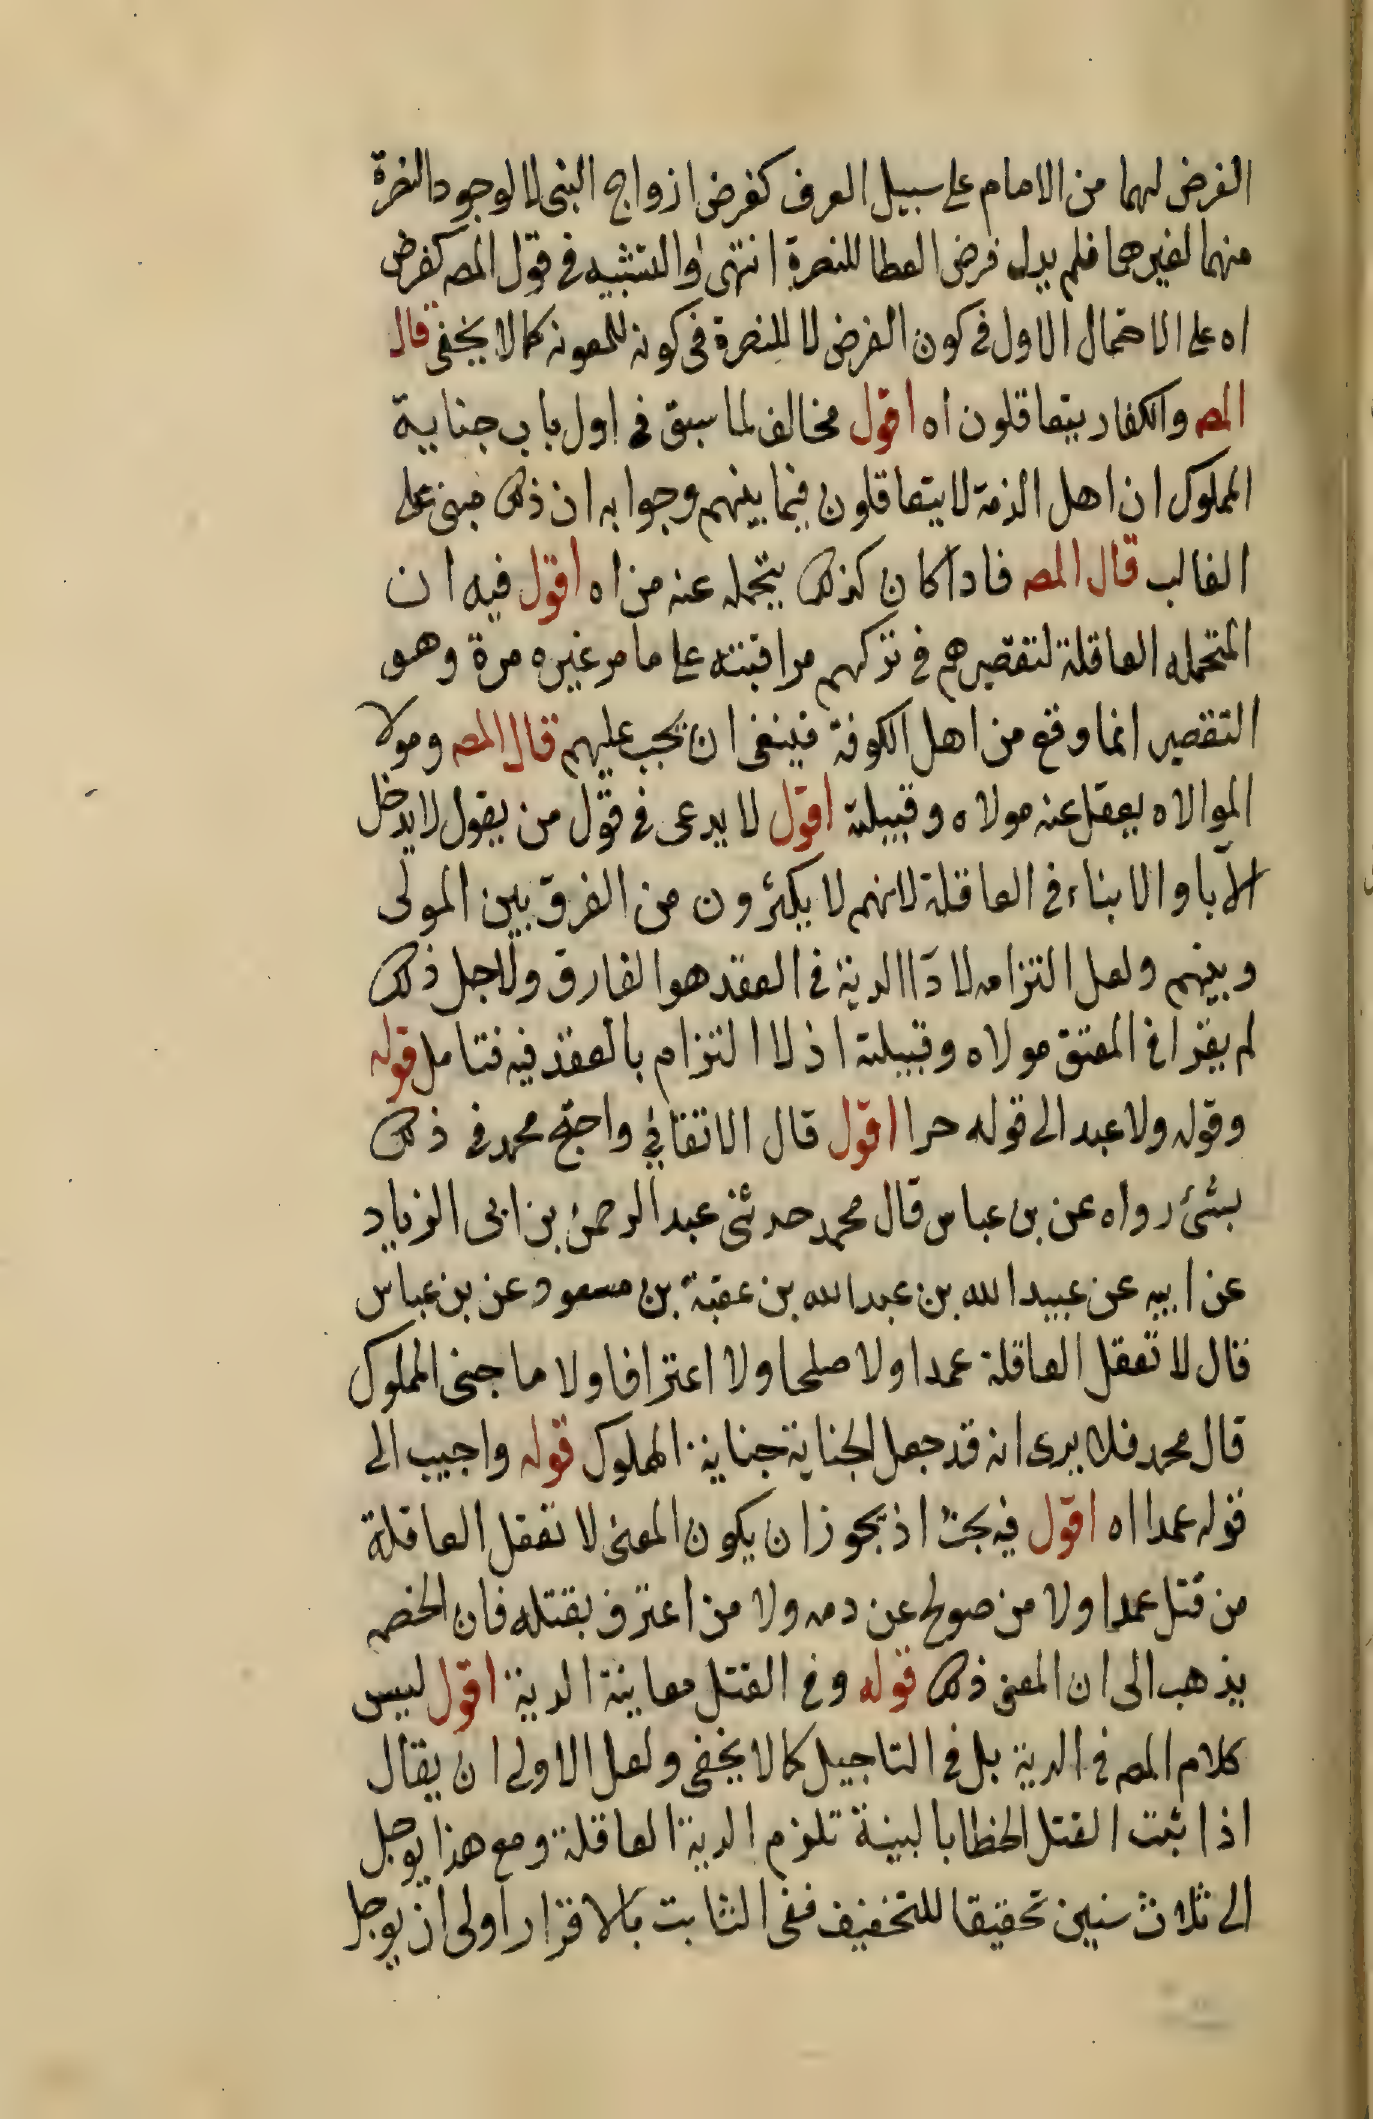 الفرض لهما من الامام على سبيل العرف كفرض ازواج النبى لا لوجود النصرة
منهما لغيرهما فلم يدل فرض العطا للنصرة انتهى والتشبيه فى قول المص كفرض
اه على الاحتمال الاول فى كون الفرض لا للنصرة فى كونه للمعونه كما لا يخفى قال
المص والكفار يتعاقلون اه اقول مخالف لما سبق فى اول باب جناية
المملوك ان اهل الذمة لا يتعاقلون فيما بينهم وجوابه ان ذلك مبنى على
الغالب قال المص فاذا كان كذلك يتحمله عنه من اه اقول فيه ان
المتحمله العاقلة لتقصيرهم فى تركهم مراقبته على ما مر غيره مرة وهو
التقصير انما وقع من اهل الكوفة فينبغى ان يجب عليهم قال المص ومولا
الموالاه يعقل عنه مولاه وقبيلته اقول لا يدعى فى قول من يقول لا يدخل
الآبا والابناء فى العاقلة لانهم لا يكثرون من الفرق بين المولى
وبينهم ولعل التزامه لادآ الدية فى العقد هو الفارق ولاجل ذلك
لم يفرا فى المعتق مولاه وقبيلته اذ لا التزام بالعقد فيه فتامل قوله
وقوله ولا عبد الى قوله حرا اقول قال الاتقانى واحتج محمد فى ذلك
بشئ رواه عن بن عباس قال محمد حدثنى عبد الرحمن بن ابى الزياد
عن ابيه عن عبيد الله بن عبد الله بن عقبة بن مسعود عن بن عباس
قال لا تعقل العاقلة عمدا ولا صلحا ولا اعترافا ولا ما جنى المملوك
قال محمد فلا يرى انه قد جعل الجناية جناية المملوك قوله واجيب الى
قوله عمدا اه اقول فيه بحث اذ يجوز ان يكون المعنى لا تعقل العاقلة
من قتل عمدا ولا من صولح عن دمه ولا من اعترف بقتله فان الخصم
يذهب الى ان المعنى ذلك قوله وفى القتل معاينة الدية اقول ليس
كلام المص فى الدية بل فى التاجيل كما لا يخفى ولعل الاولى ان يقال
اذا ثبت القتل الخطا بالبينة تلزم الدية العاقلة ومع هذا يوجل
الى ثلاث سنين تحقيقا للتخفيف ففى الثابت بالاقرار اولى ان يوجل